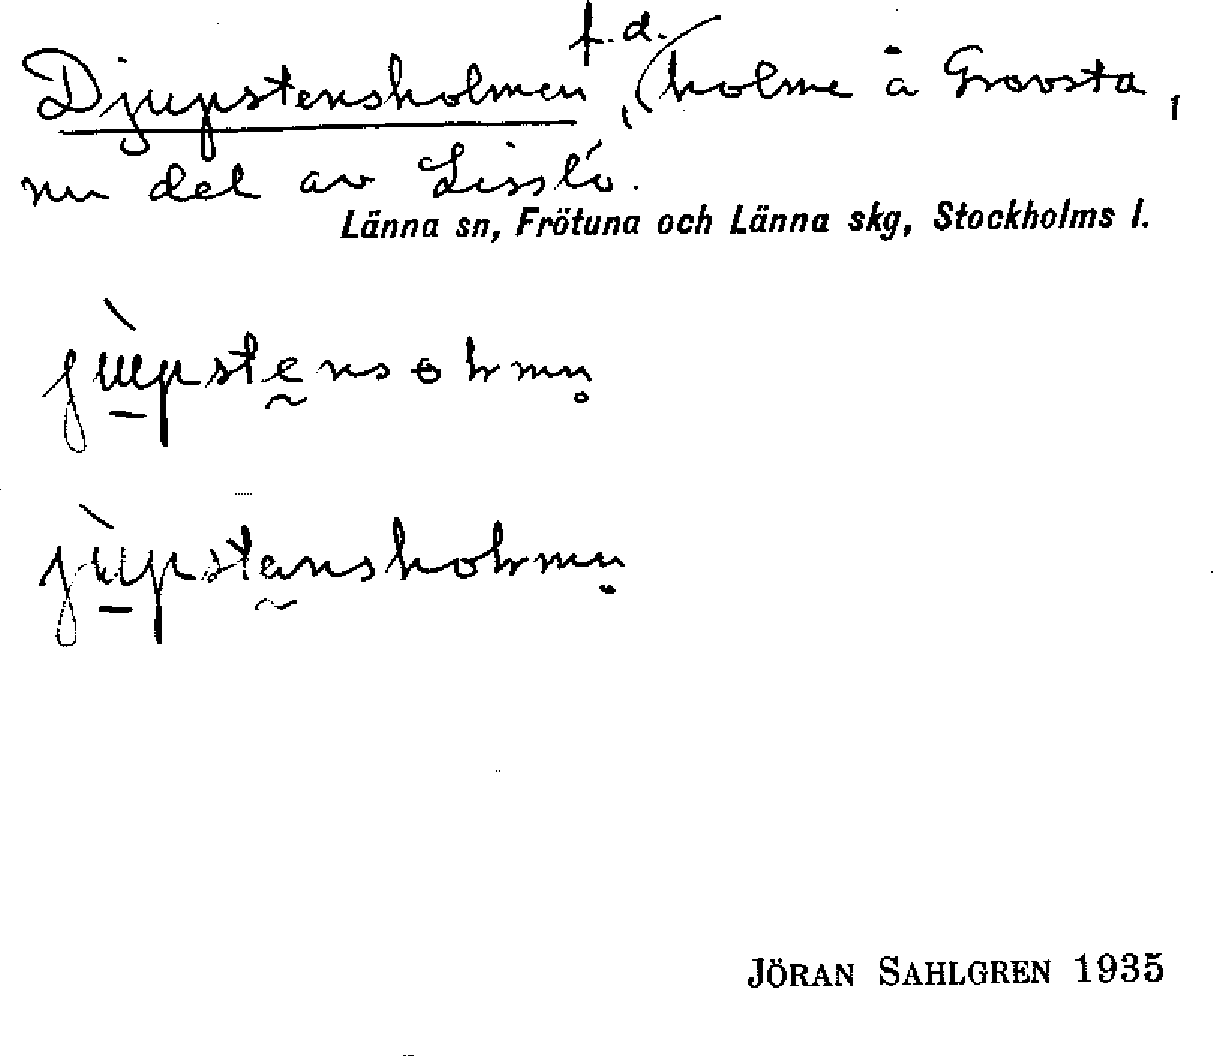 Djupstensholmen, f.d. holme å Gravsta,
nu del av Lisslö.
Länna sn, Frötuna och Länna skg, Stockholms l.
JÖRAN SAHLGREN 1935